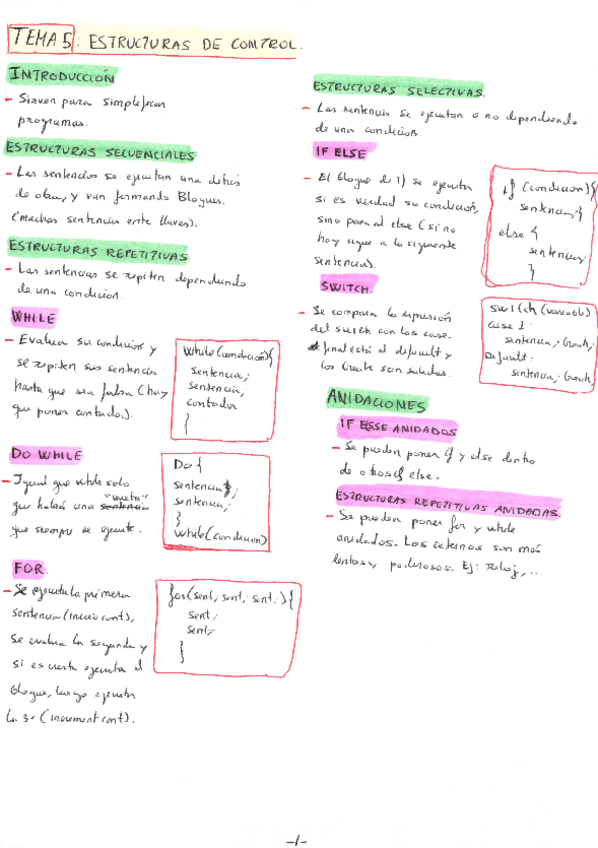 TEMA 5: ESTRUCTURAS DE CONTROL.
INTRODUCCIÓN
- Sirven para simplificar
programas.
ESTRUCTURAS SECUENCIALES
- Las sentencias se ejecutan una detrás
de otra, y van formando Bloques.
(muchas sentencias entre llaves).
ESTRUCTURAS REPETITIVAS
- Las sentencias se repiten dependiendo
de una condicion.
WHILE
- Evaluan su condicion y
se repiten sus sentencias
hasta que sea falsa (hay
que poner contador).
while(condición){
sentencia;
sentencia;
contador
}
DO WHILE
- Igual que while solo
que habrá una "vuelta"
que siempre se ejecute.
Do {
sentencia;
sentencia;
}
while(condicion)
FOR
- Se ejecuta la primera
sentencia (inicio cont),
se evalua la segunda y
si es cierta ejecuta el
bloque, luego ejecuta
la 3º (increment cont).
for(sent; sent; sent;){
sent;
sent;
}
ESTRUCTURAS SELECTIVAS.
- Las sentencias se ejecutan o no dependiendo
de una condicion
IF ELSE
- El bloque de if se ejecuta
si es verdad su condición,
sino pasa al else (si no
hay sigue a la siguiente
sentencia).
if (condicion){
sentencias}
else {
sentencias
}
SWITCH.
- Se compara la expresión
del switch con los case.
Al final está el default y
los break son salidas.
switch(variable)
case 1:
sentencia; break;
Default:
sentencia; break;
ANIDACIONES
IF ESSE ANIDADOS
- Se pueden poner if y else dentro
de otros if else.
ESTRUCTURAS REPETITIVAS ANIDADAS.
- Se pueden poner for y while
anidados. Los externos son más
lentos y poderosos. Ej: Reloj, ...
-1-